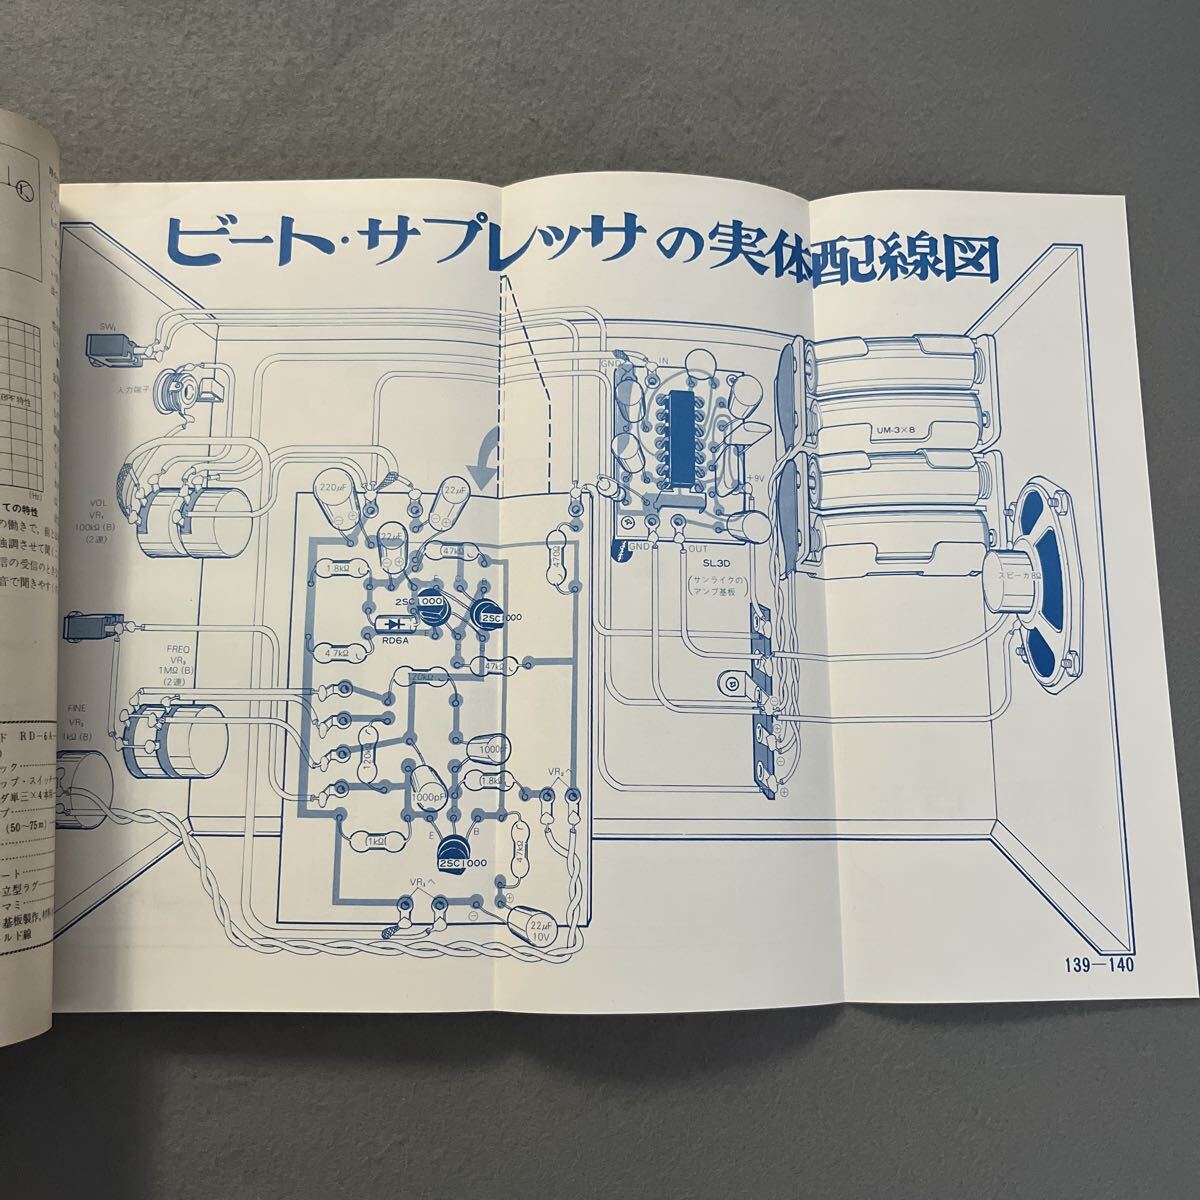 ビート・サプレッサの実体配線図
SW₁
入力端子
VOL
VR₁
100kΩ(B)
(2連)
FREQ
VR₂
1MΩ(B)
(2連)
FINE
VR₃
1kΩ(B)
220μF
22μF
22μF
1.8kΩ
47kΩ
470Ω
2SC1000
2SC1000
RD6A
47kΩ
47kΩ
120kΩ
120kΩ
1000pF
1000pF
1.8kΩ
VR₂へ
1kΩ
E
B
2SC1000
47kΩ
VR₃へ
22μF
10V
GND
IN
+9V
GND
OUT
SL3D
(サンライクの
アンプ基板)
UM-3×8
スピーカ8Ω
139—140
BPF特性
(Hz)
ての特性
の働きで、
強調させて聞く
信の受信のとき
音で聞きやすく
ド RD-6A
ック
ップ・スイッチ
ダ単三×4本用
プ
(50〜75m)
ート
立型ラグ
マミ
基板製作、
ルド線